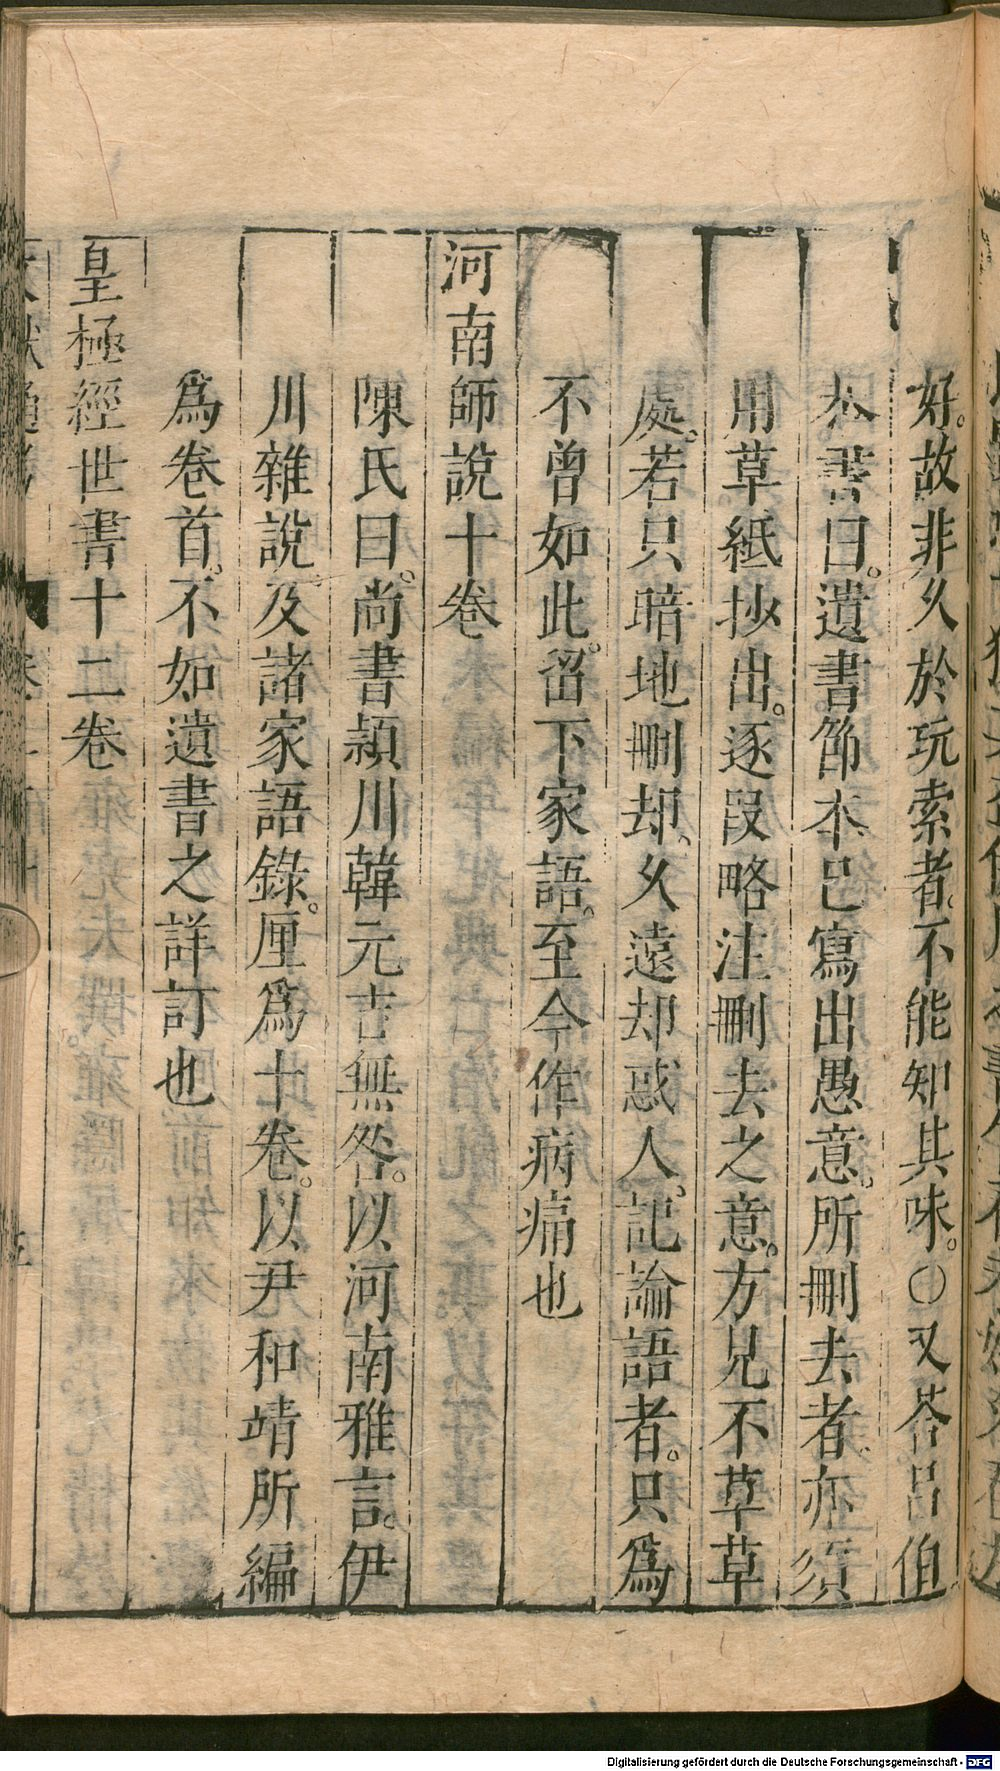 好故非久於玩索者不能知其味○又荅呂伯
恭書曰遺書節本已寫出愚意所刪去者亦須
用草紙抄出逐段略注刪去之意方見不草草
處若只暗地刪却久遠却惑人記論語者只為
不曾如此留下家語至今作病痛也
河南師說十卷
陳氏曰尚書潁川韓元吉無咎以河南雅言伊
川雜說及諸家語錄厘為十卷以尹和靖所編
為卷首不如遺書之詳訂也
皇極經世書十二卷
Digitalisierung gefördert durch die Deutsche Forschungsgemeinschaft - DFG